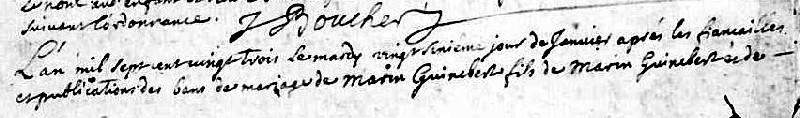 suivant l'ordonnance. J Boucher
L'an mil sept cent vingt trois le mardy vingt sixieme jour de Janvier aprés les fiancailles
et publications des bans de mariage de Marin Guinebert fils de Marin Guinebert & de —